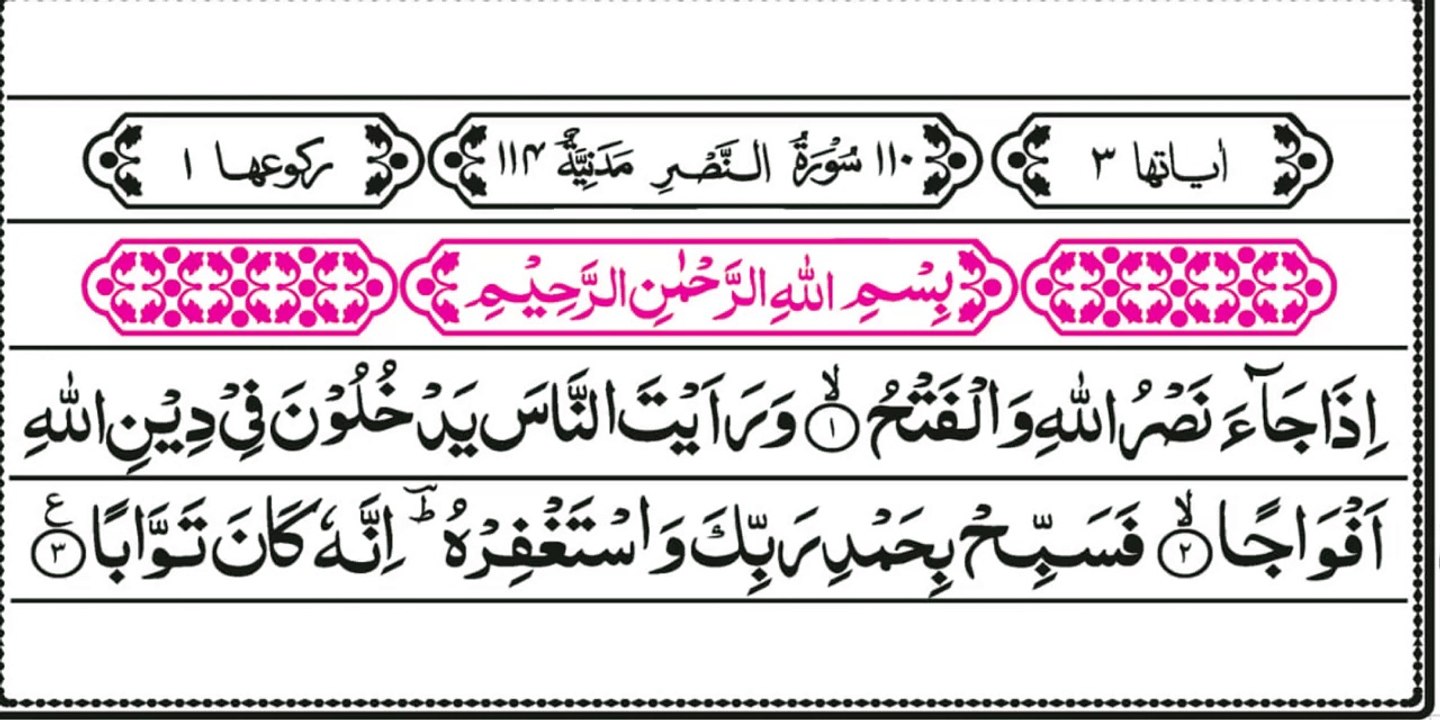 اٰیاتها ۳ ۱۱۰ سُوْرَةُ النَّصْرِ مَدَنِیَّةٌ ۱۱۴ رکوعها ۱
بِسْمِ اللهِ الرَّحْمٰنِ الرَّحِیْمِ
اِذَا جَآءَ نَصْرُ اللهِ وَالْفَتْحُ ۙ﴿۱﴾ وَرَاَیْتَ النَّاسَ یَدْخُلُوْنَ فِیْ دِیْنِ اللهِ
اَفْوَاجًا ۙ﴿۲﴾ فَسَبِّحْ بِحَمْدِ رَبِّكَ وَاسْتَغْفِرْهُ ؕ اِنَّهٗ كَانَ تَوَّابًا ﴿۳﴾ ع